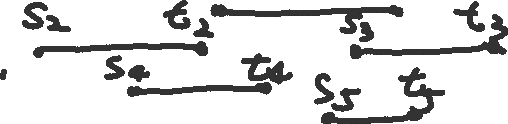 s2 t2 s3 t3
s4 t4
s5 t5